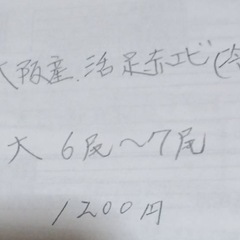 大阪産.活足赤エビ(
大 6尾〜7尾
1200円